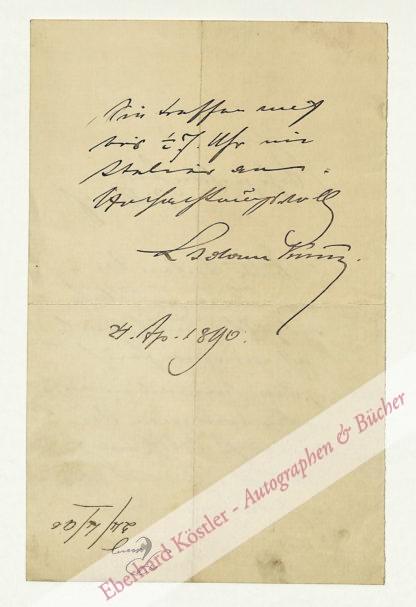 Sie treffen mich
bis ½7. Uhr im
Atelier an.
Hochachtungsvoll
24. Ap. 1890.
24/4/90
Eberhard Köstler - Autographen & Bücher